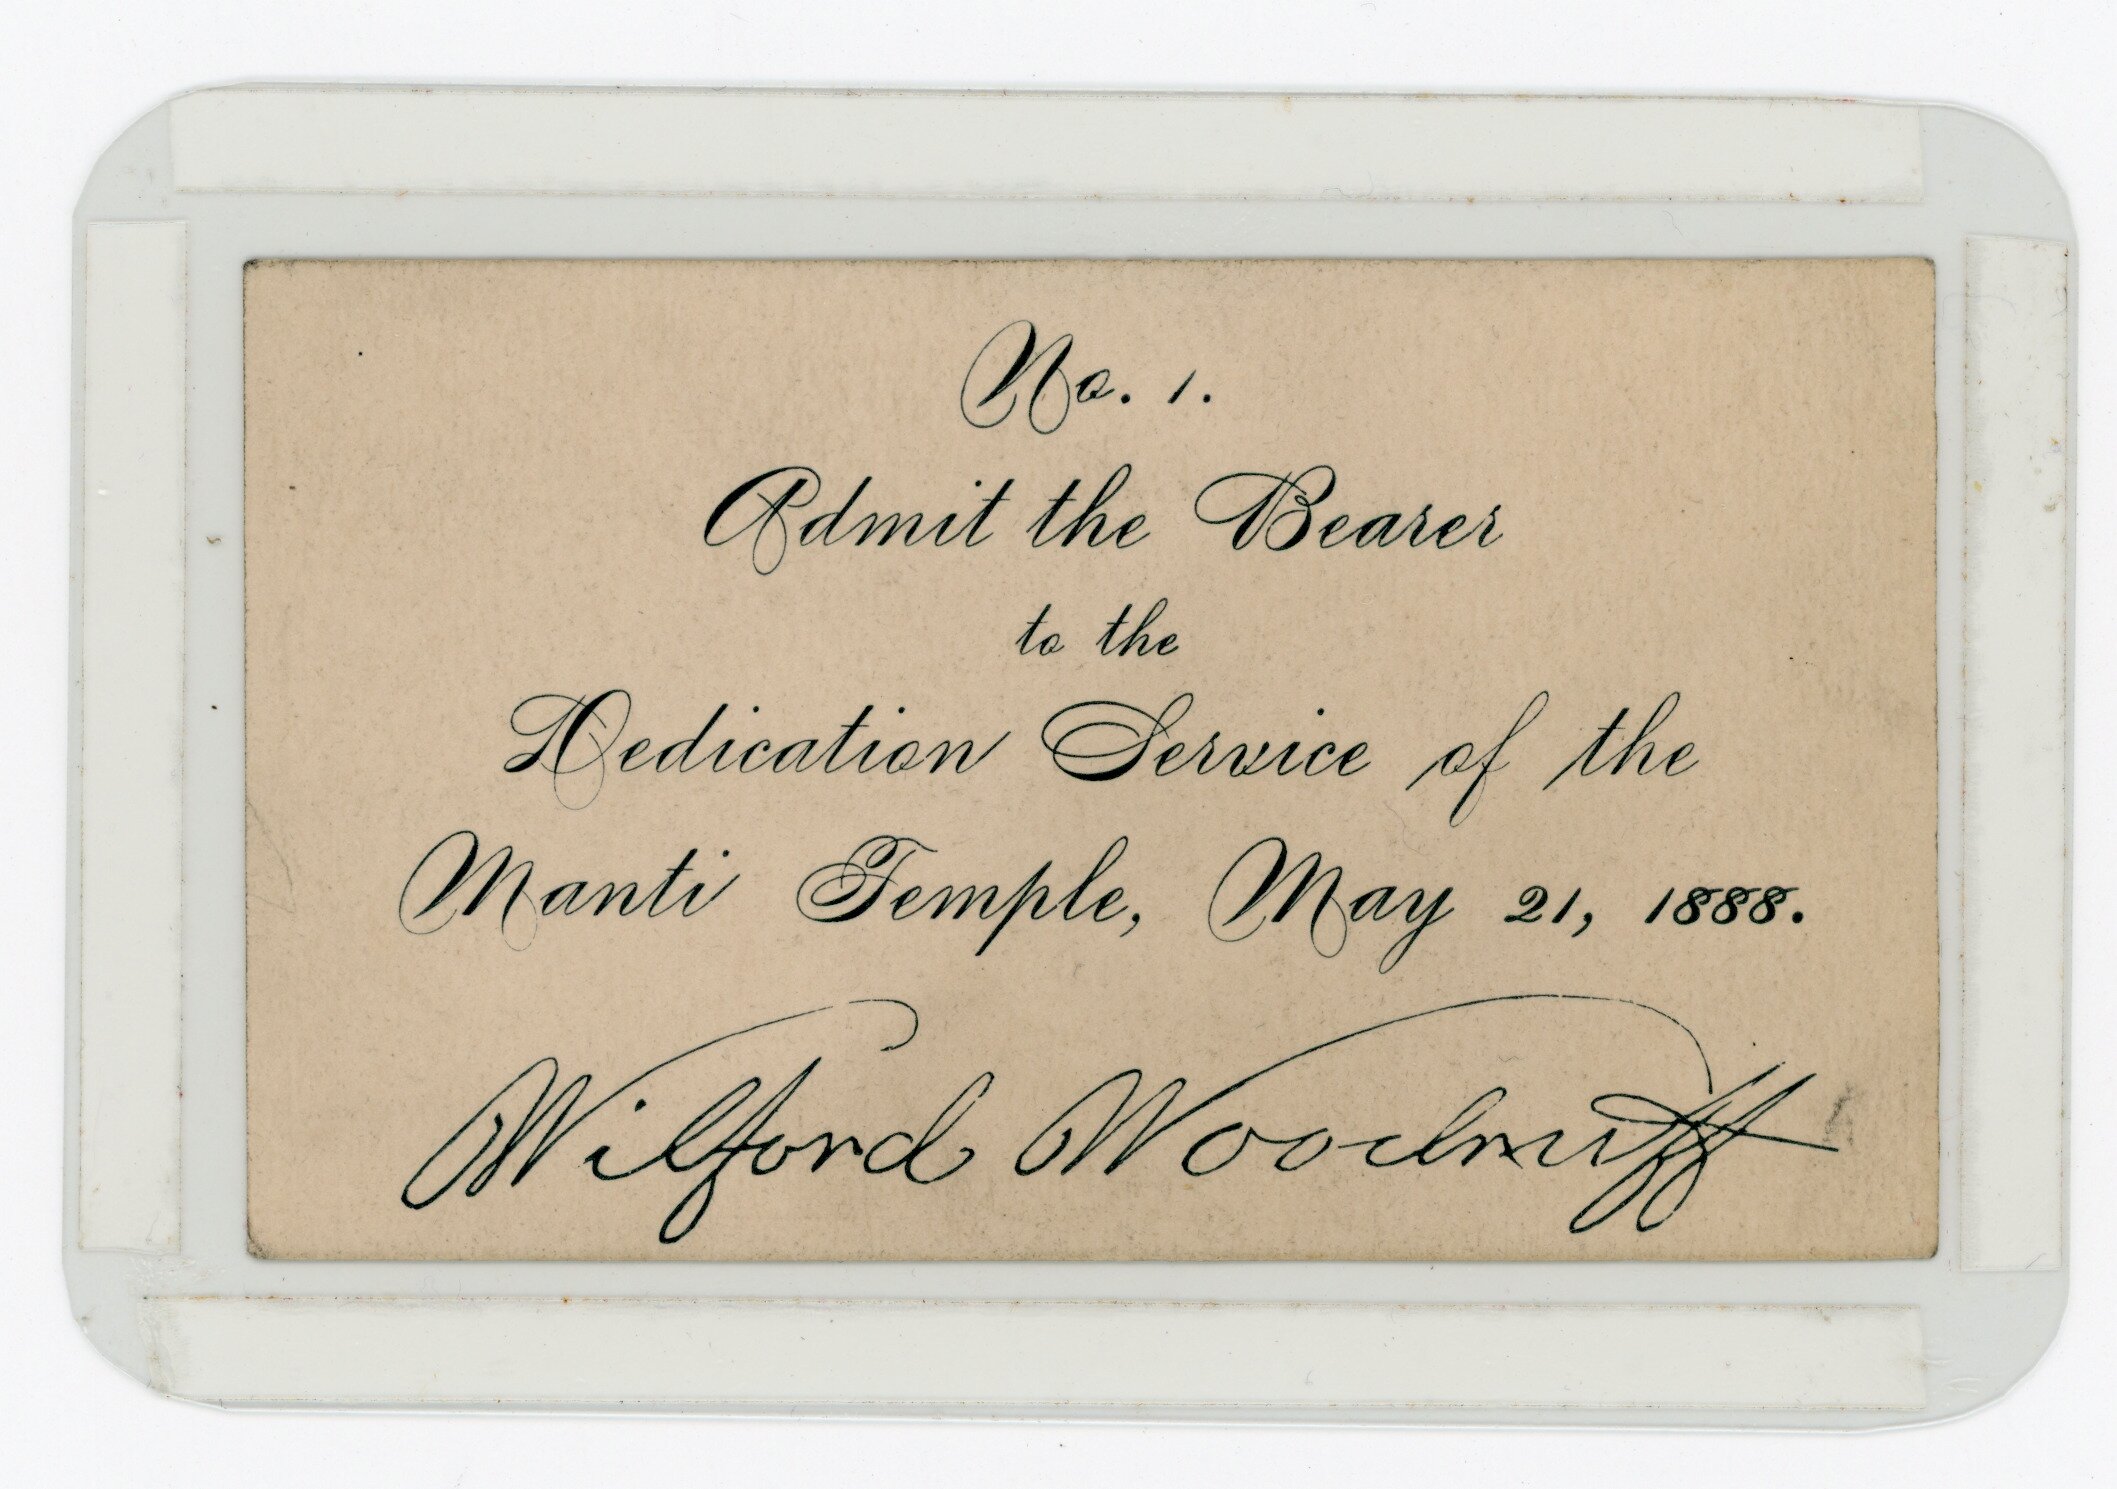 No. 1.
Admit the Bearer
to the
Dedication Service of the
Manti Temple, May 21, 1888.
Wilford Woodruff